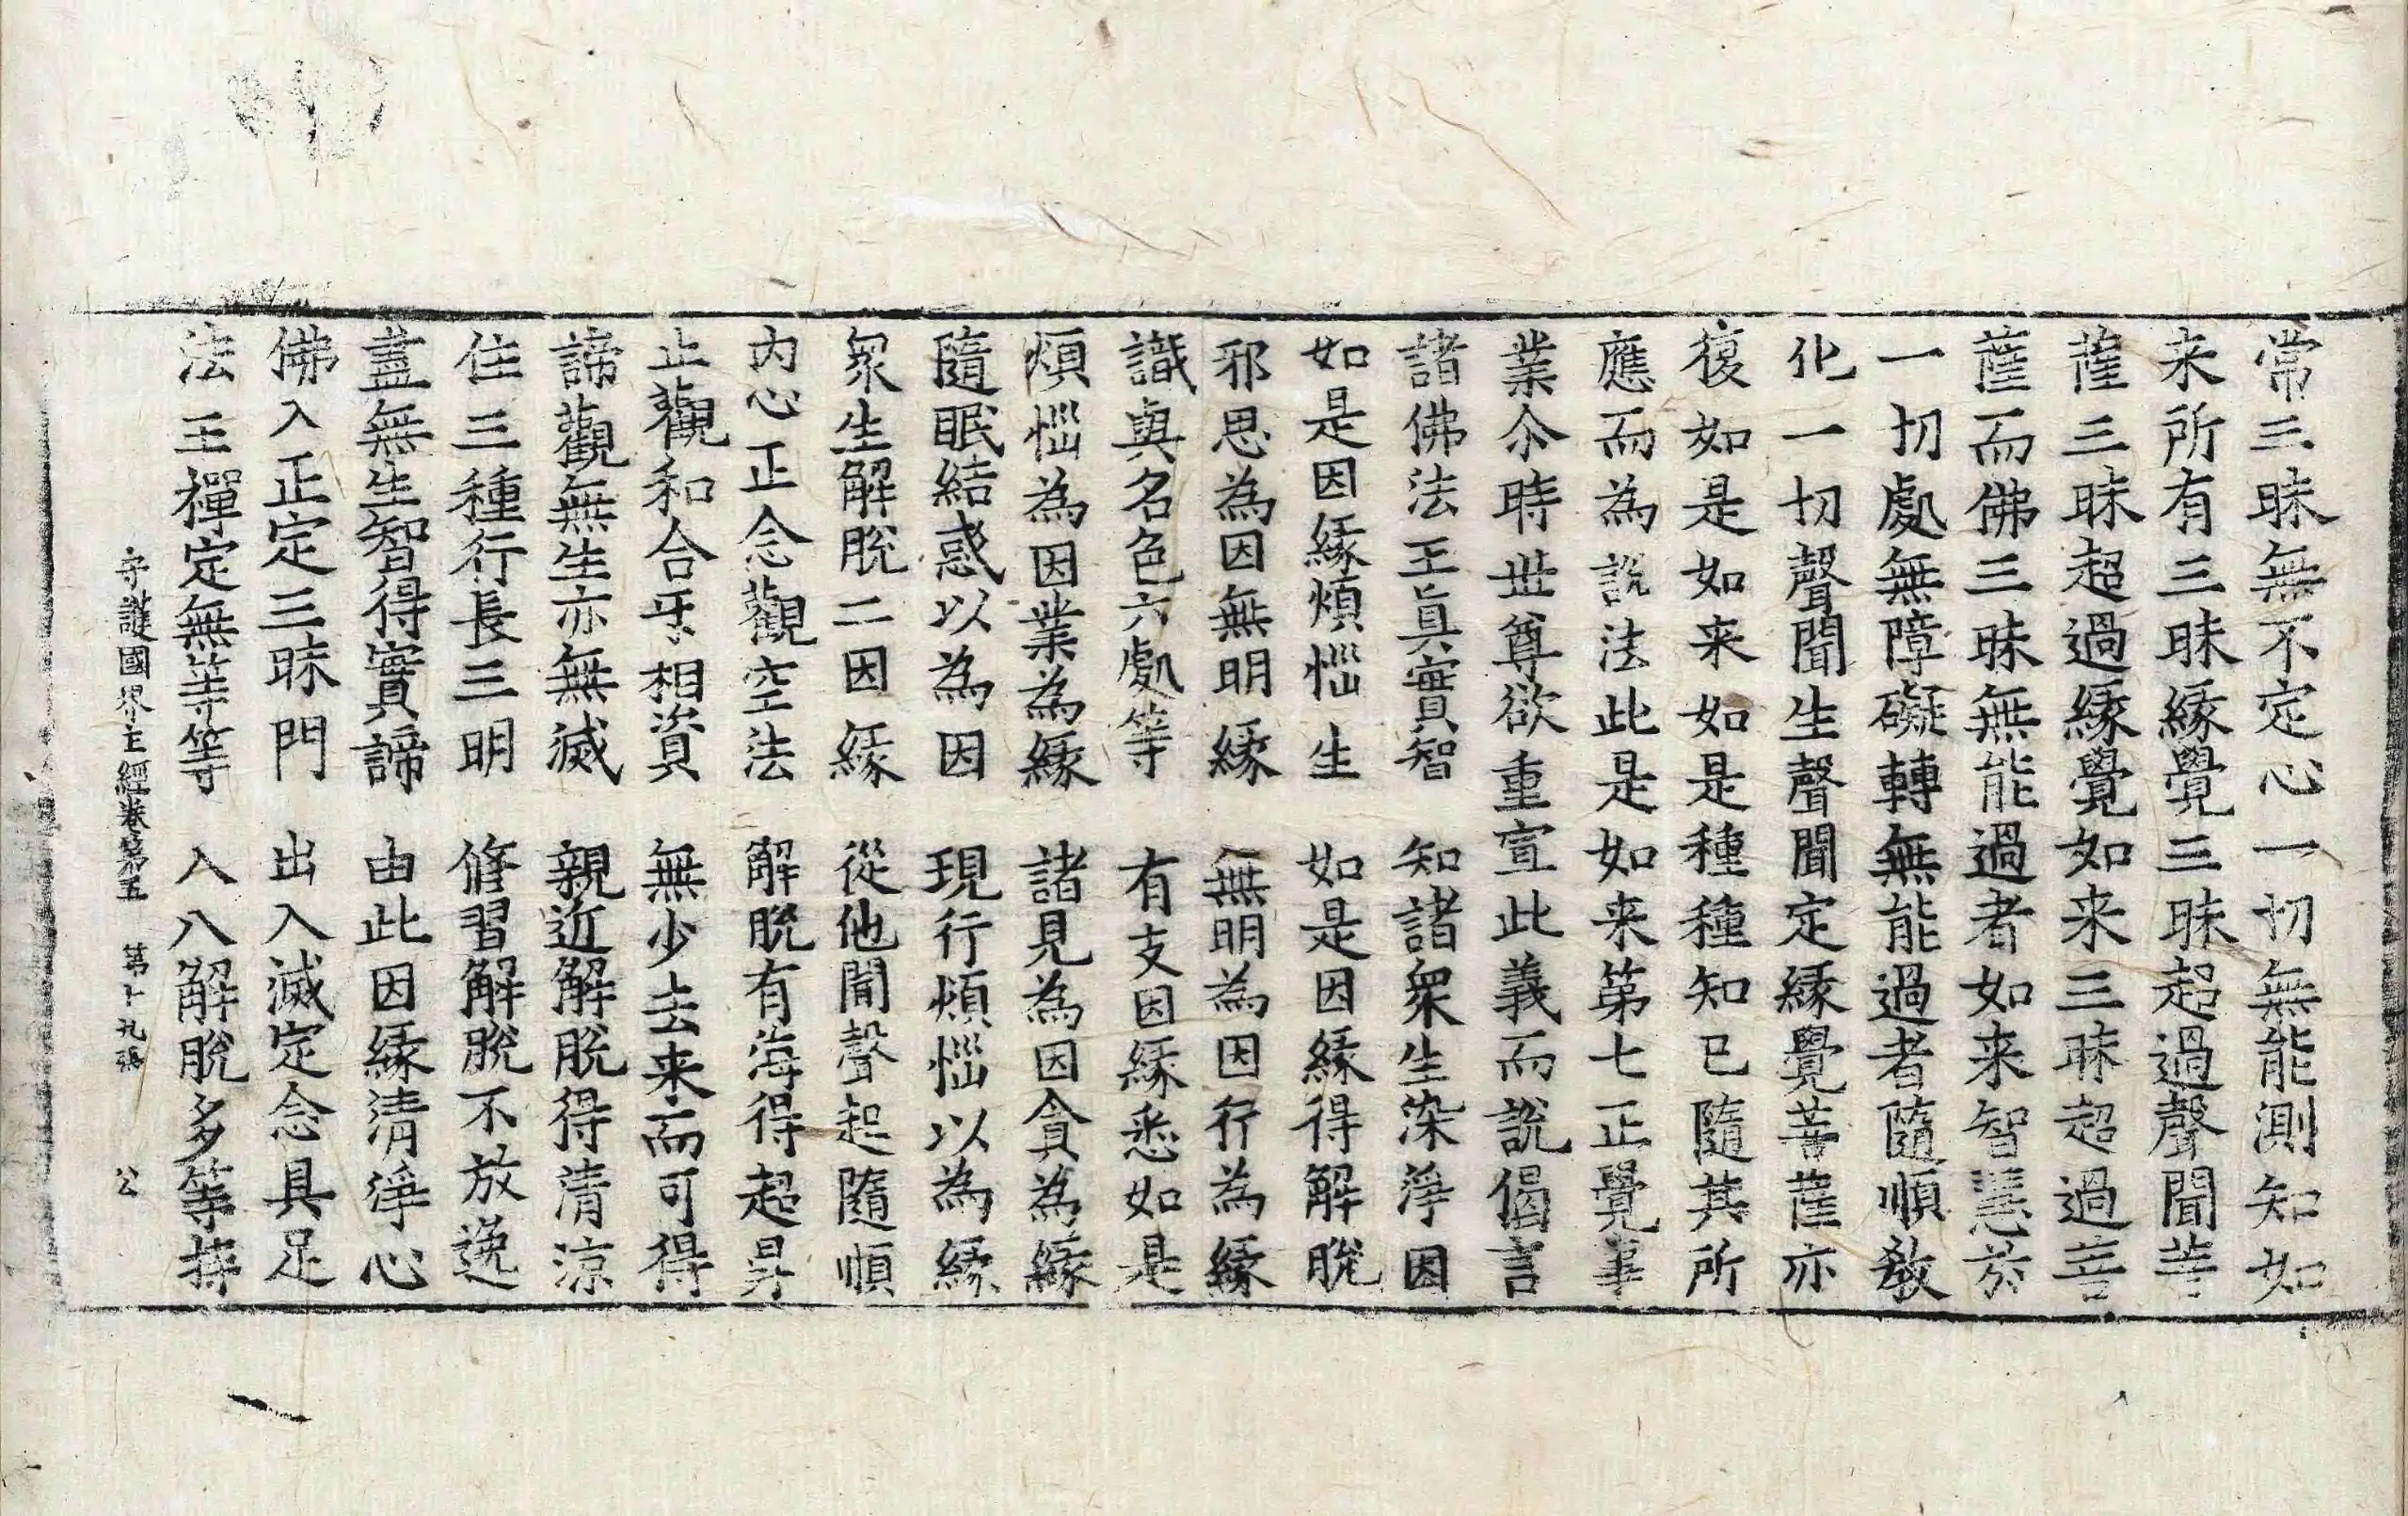 常三昧無不定心一切無能測知如
来所有三昧緣覺三昧超過聲聞菩
薩三昧超過緣覺如来三昧超過菩
薩而佛三昧無能過者如来智慧於
一切處無障礙轉無能過者隨順教
化一切聲聞生聲聞定緣覺菩薩亦
復如是如来如是種種知已隨其所
應而為說法此是如来第七正覺事
業尒時世尊欲重宣此義而說偈言
諸佛法王眞實智　知諸衆生染淨因
如是因緣煩惱生　如是因緣得解脫
邪思為因無明緣　無明為因行為緣
識與名色六處等　有支因緣悉如是
煩惱為因業為緣　諸見為因貪為緣
隨眠結惑以為因　現行煩惱以為緣
衆生解脫二因緣　從他聞聲起隨順
內心正念觀空法　解脫有海得超昇
止觀和合互相資　無少去来而可得
諦觀無生亦無滅　親近解脫得清涼
住三種行長三明　修習解脫不放逸
盡無生智得實諦　由此因緣清淨心
佛入正定三昧門　出入滅定念具足
法王禪定無等等　入八解脫多等持
守護國界主經卷第五　第十九張　公